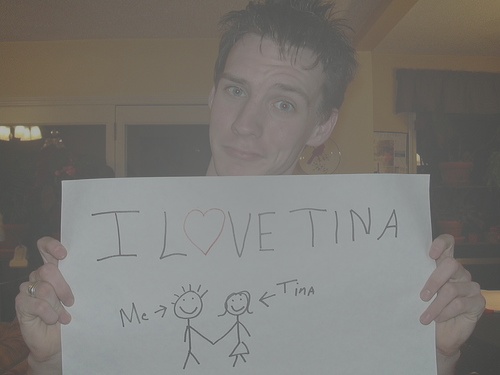 I LOVE TINA
Me
TinA